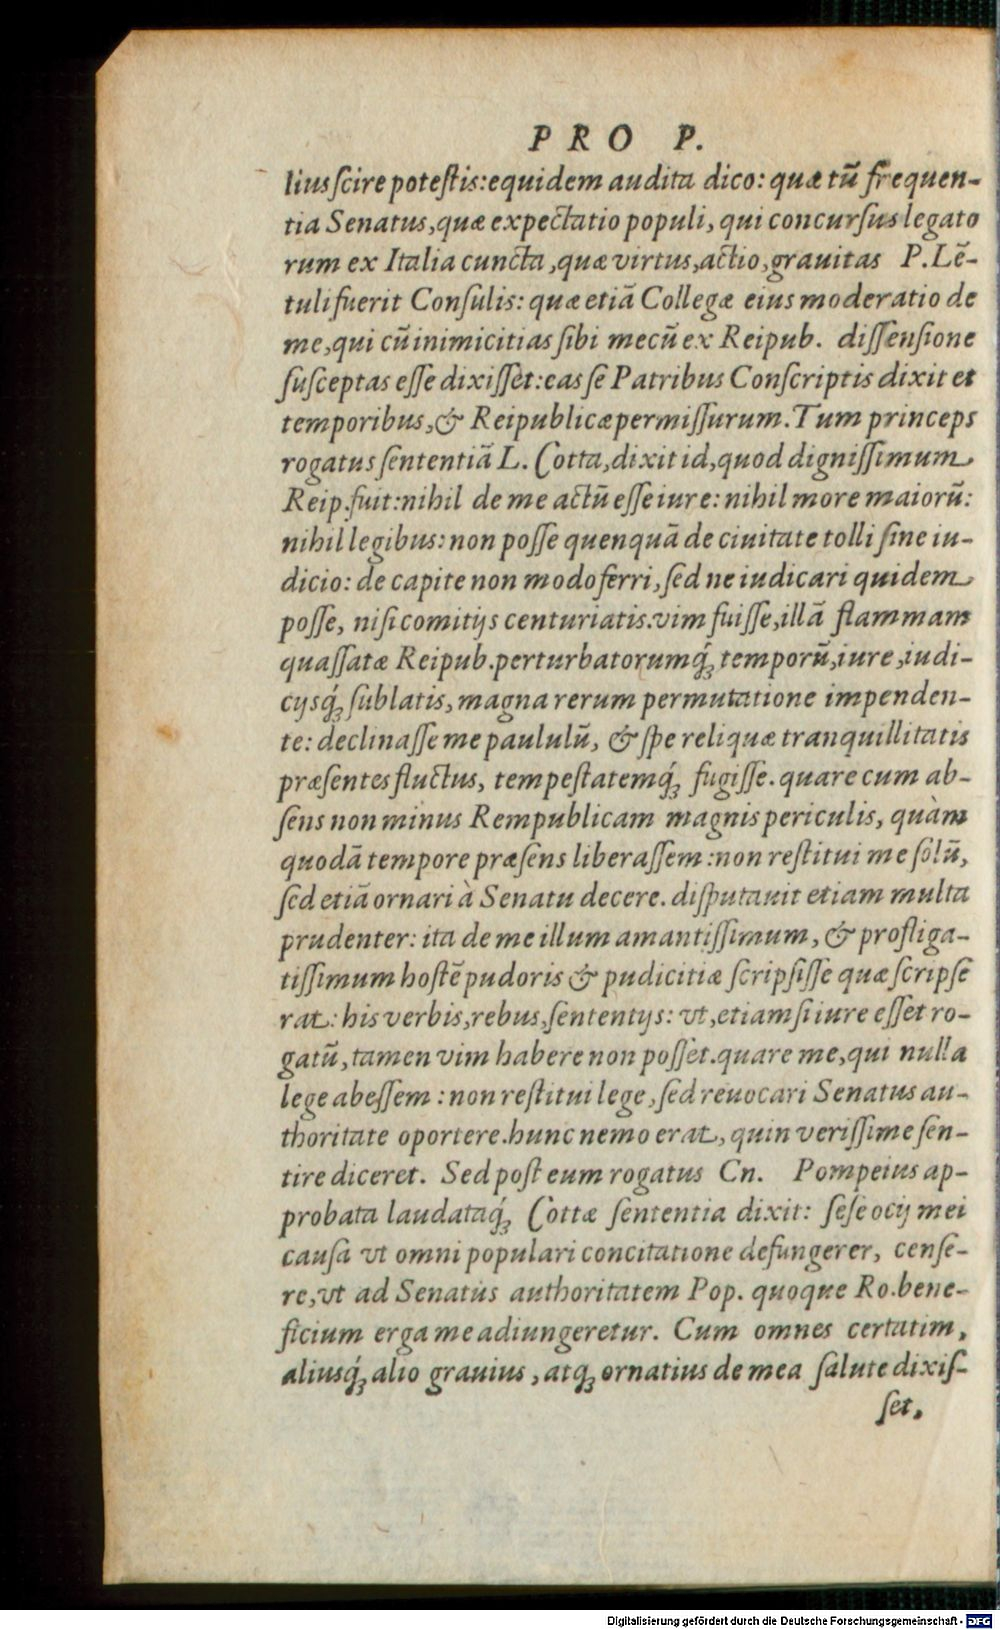 PRO P.
lius ſcire poteſtis: equidem audita dico: quæ tū frequen-
tia Senatus, quæ expectatio populi, qui concurſus legato
rum ex Italia cuncta, quæ virtus, actio, grauitas P. Lē-
tuli fuerit Conſulis: quæ etiā Collegæ eius moderatio de
me, qui cū inimicitias ſibi mecū ex Reipub. diſſenſione
ſuſceptas eſſe dixiſſet: eas ſe Patribus Conſcriptis dixit et
temporibus, & Reipublicæ permiſſurum. Tum princeps
rogatus ſententiā L. Cotta, dixit id, quod digniſſimum
Reip. fuit: nihil de me actū eſſe iure: nihil more maiorū:
nihil legibus: non poſſe quenquā de ciuitate tolli ſine iu-
dicio: de capite non modo ferri, ſed ne iudicari quidem
poſſe, niſi comitijs centuriatis. vim fuiſſe, illā flammam
quaſſatæ Reipub. perturbatorumq́ꝫ temporū, iure, iudi-
cijsq́ꝫ ſublatis, magna rerum permutatione impenden-
te: declinaſſe me paululū, & ſpe reliquæ tranquillitatis
præſentes fluctus, tempeſtatemq́ꝫ fugiſſe. quare cum ab-
ſens non minus Rempublicam magnis periculis, quàm
quodā tempore præſens liberaſſem: non reſtitui me ſolū,
ſed etiā ornari à Senatu decere. diſputauit etiam multa
prudenter: ita de me illum amantiſſimum, & profliga-
tiſſimum hoſtē pudoris & pudicitiæ ſcripſiſſe quæ ſcripſe
rat: his verbis, rebus, ſententijs: vt, etiam ſi iure eſſet ro-
gatū, tamen vim habere non poſſet. quare me, qui nulla
lege abeſſem: non reſtitui lege, ſed reuocari Senatus au-
thoritate oportere. hunc nemo erat, quin veriſſime ſen-
tire diceret. Sed poſt eum rogatus Cn. Pompeius ap-
probata laudataq́ꝫ Cottæ ſententia dixit: ſeſe ocij mei
cauſa vt omni populari concitatione defungerer, cenſe-
re, vt ad Senatus authoritatem Pop. quoque Ro. bene-
ficium erga me adiungeretur. Cum omnes certatim,
aliusq́ꝫ alio grauius, atqꝫ ornatius de mea ſalute dixiſ-
ſet,
Digitalisierung gefördert durch die Deutsche Forschungsgemeinschaft - DFG